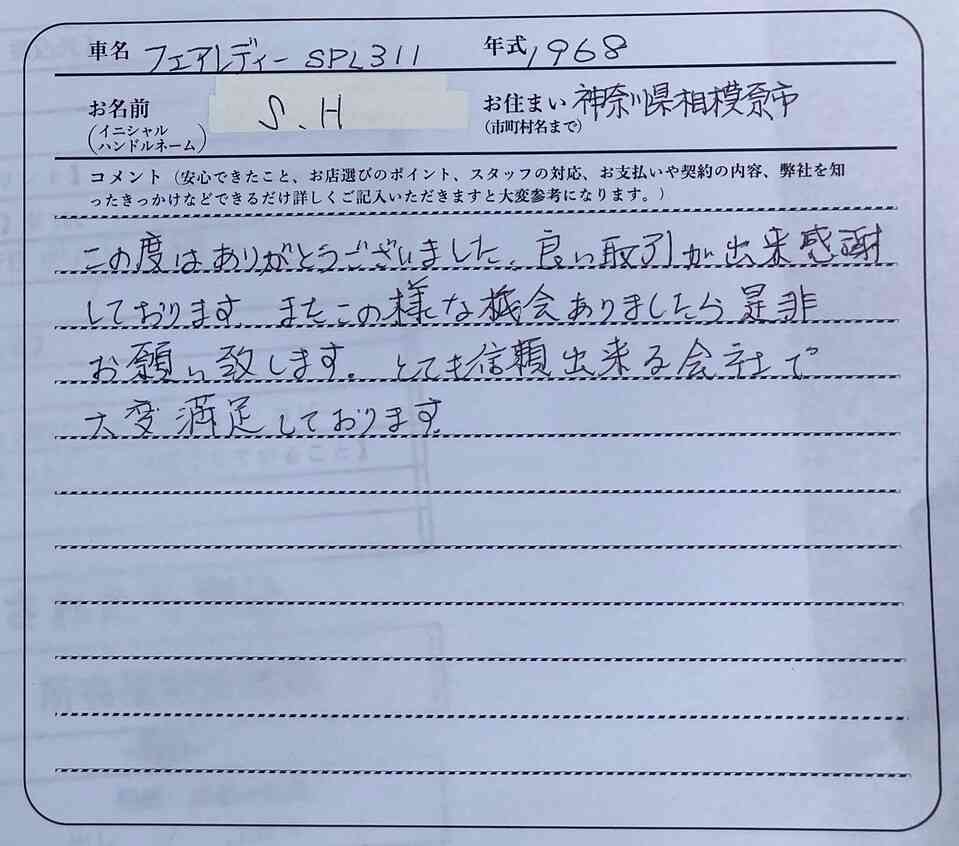 車名 フェアレディー SPL311 年式 1968
お名前 (イニシャル ハンドルネーム) S.H お住まい (市町村名まで) 神奈川県相模原市
コメント（安心できたこと、お店選びのポイント、スタッフの対応、お支払いや契約の内容、弊社を知
ったきっかけなどできるだけ詳しくご記入いただきますと大変参考になります。）
この度はありがとうございました。良い取引が出来感謝
しております。またこの様な機会ありましたら是非
お願い致します。とても信頼出来る会社で
大変満足しております。